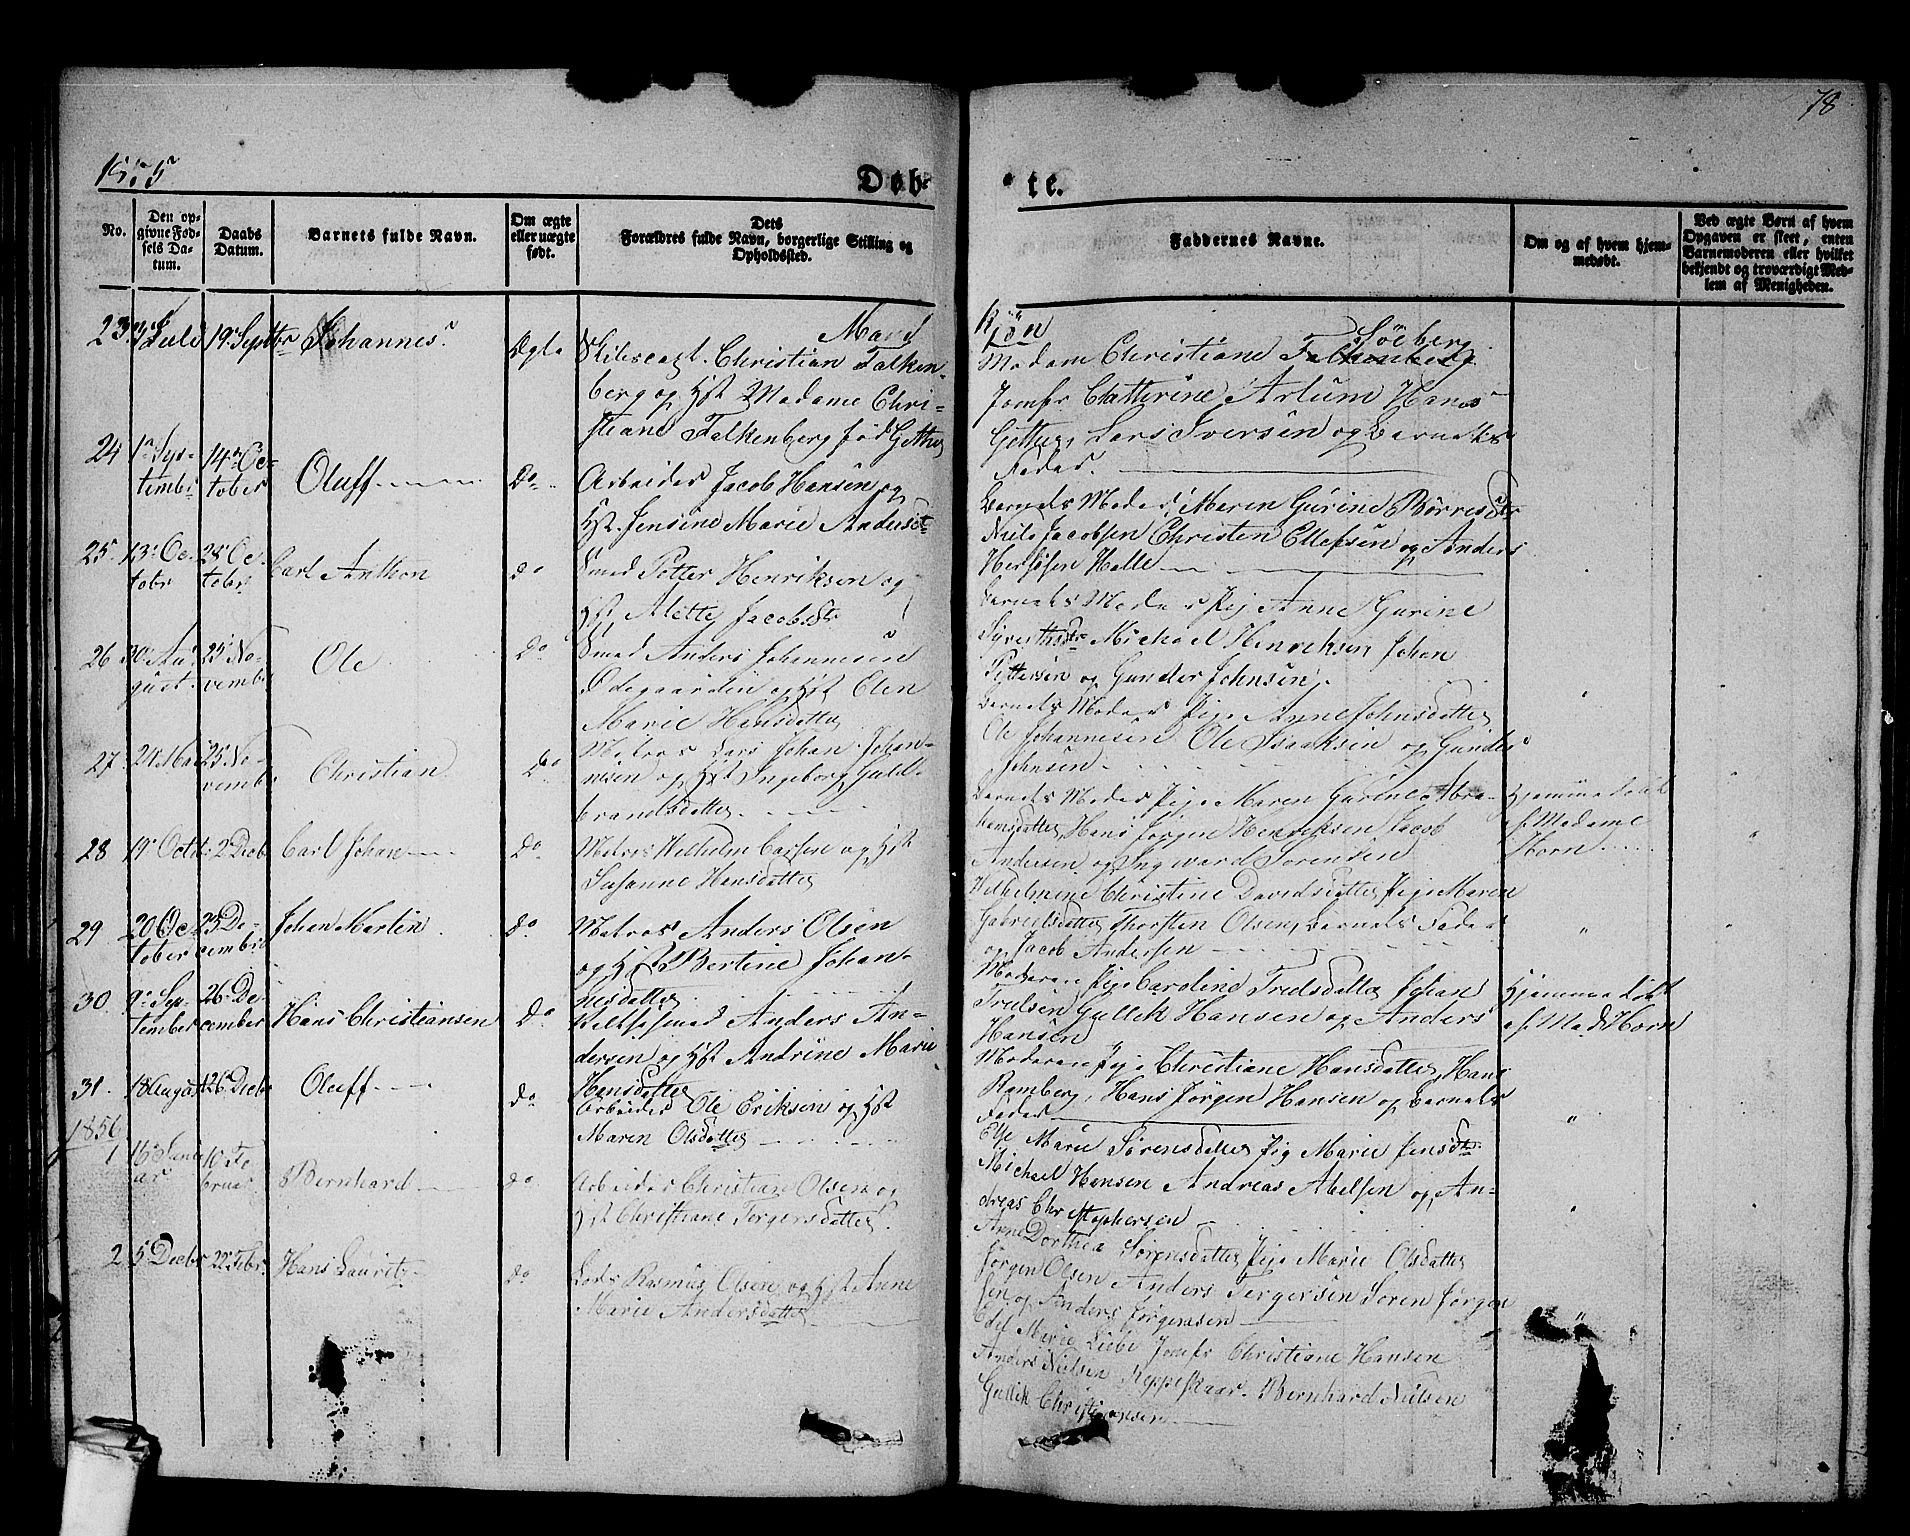 78
1855
Døb- te.
No.
Den opgivne Fødsels Datum.
Daabs Datum.
Barnets fulde Navn.
Om ægte eller uægte født.
Dets Forældres fulde Navn, borgerlige Stilling og Opholdssted.
Faddernes Navne.
Om og af hvem hjemmedøbt.
Ved ægte Børn af hvem Opgaven er skeet, enten Barnemoderen eller hvilket bekjendt og troværdigt Medlem af Menigheden.
Mand Kjøn
23 Juli 19 Septbr Johannes
Ægte
Christian Falken-
berg og Hst Madame Chri-
stiane Falkenberg fød
Madam Christiane Falkenberg Söeberg
Jomfr Chatterine Hans
Lars Iversen og Barnets
Fader.
24 1 Sep-
tembr
14 Oc-
tober
Oluff
Do
Arbeider Jacob Hansen og
Hst. Jensine Marie Andersdt
Barnets Moder, Maren Gurine Börresdtr
Niels Jacobsen Christen Ellefsen og Anders
Halle
25 13 Oc-
tobr
28 Oc-
tobr
Carl Anthon
do
Smed Petter Henriksen og
Hst Alette Jacobsdtr
Barnets Moder Pige Anne Gurine
Michael Henriksen Johan
Pettersen og Gunder Johnsen
26 30 Au-
gust
25 No-
vembr
Ole
Do
Smed Anders Johannesen
Ødegaarden og Hst Elen
Marie Hansdatter
Barnets Moder Pige Anne Johnsdatter
Ole Johannesen Ole Isaaksen og Gunder
Johnsen
27 24 Mai 25 No-
vembr
Christian
Do
Matros Lars Johan Johan-
nesen og Hst Ingeborg Guld-
brandsdatter
Barnets Moder Pige Maren Gurine Abra-
hamsdatter, Hans Jørgen Henriksen Jacob
Andersen og Ingward Sørensen
Hjemmedøbt
af Madame
Horn
28 19 Octbr 2 Decb Carl Johan
Do
Matros Wilhelm Carlsen og Hst
Susanne Hansdatter
Wilhelmine Christine Davidsdatter Pige Maren
Gabrielsdatter Thorsten Olsen, Barnets Fader
og Jacob Andersen
29 20 Oc-
tober
23 De-
cembr
Johan Martin
do
Matros Anders Olsen
og Hst Bertine Johan-
nesdatter
Moderen Pige Caroline Trulsdatter Johan
Trulsen Gullik Hansen og Anders
Hansen
Hjemmedøbt
af Mad. Horn
30 9 Sep-
tember
26 De-
cember
Hans Christiansen
Do
Anders An-
dersen og Hst Andrine Marie
Hansdatter
Moderen Pige Christiane Hansdatter, Hans
Ramberg, Hans Jørgen Hansen og Barnets
Fader
31 18 August 26 Decbr Oluff
Do
Arbeider Ole Eriksen og Hst
Maren Olsdatter
Else Marie Sörensdatter Pige Marie Jensdtr
Michael Hansen Andreas Abelsen og An-
dreas Christophersen
1856
1 16 Janu-
ar
10 Fe-
bruar
Bernhard
do
Arbeider Christian Olsen og
Hst Christiane Torgersdatter
Anne Dorthea Sörensdatter Pige Marie Olsdatter
Jörgen Olsen Anders Torgersen Sören Jörgen-
sen og Anders Jörgensen
2 5 Decbr 22 Febr. Hans Lauritz
do
Lods Rasmus Olsen og Hst Anne
Marie Andersdatter
Edel Marie Liebe Jomfr Christiane Hansen
Anders Nielsen Bernhard Nielsen
Gullik Christiansen